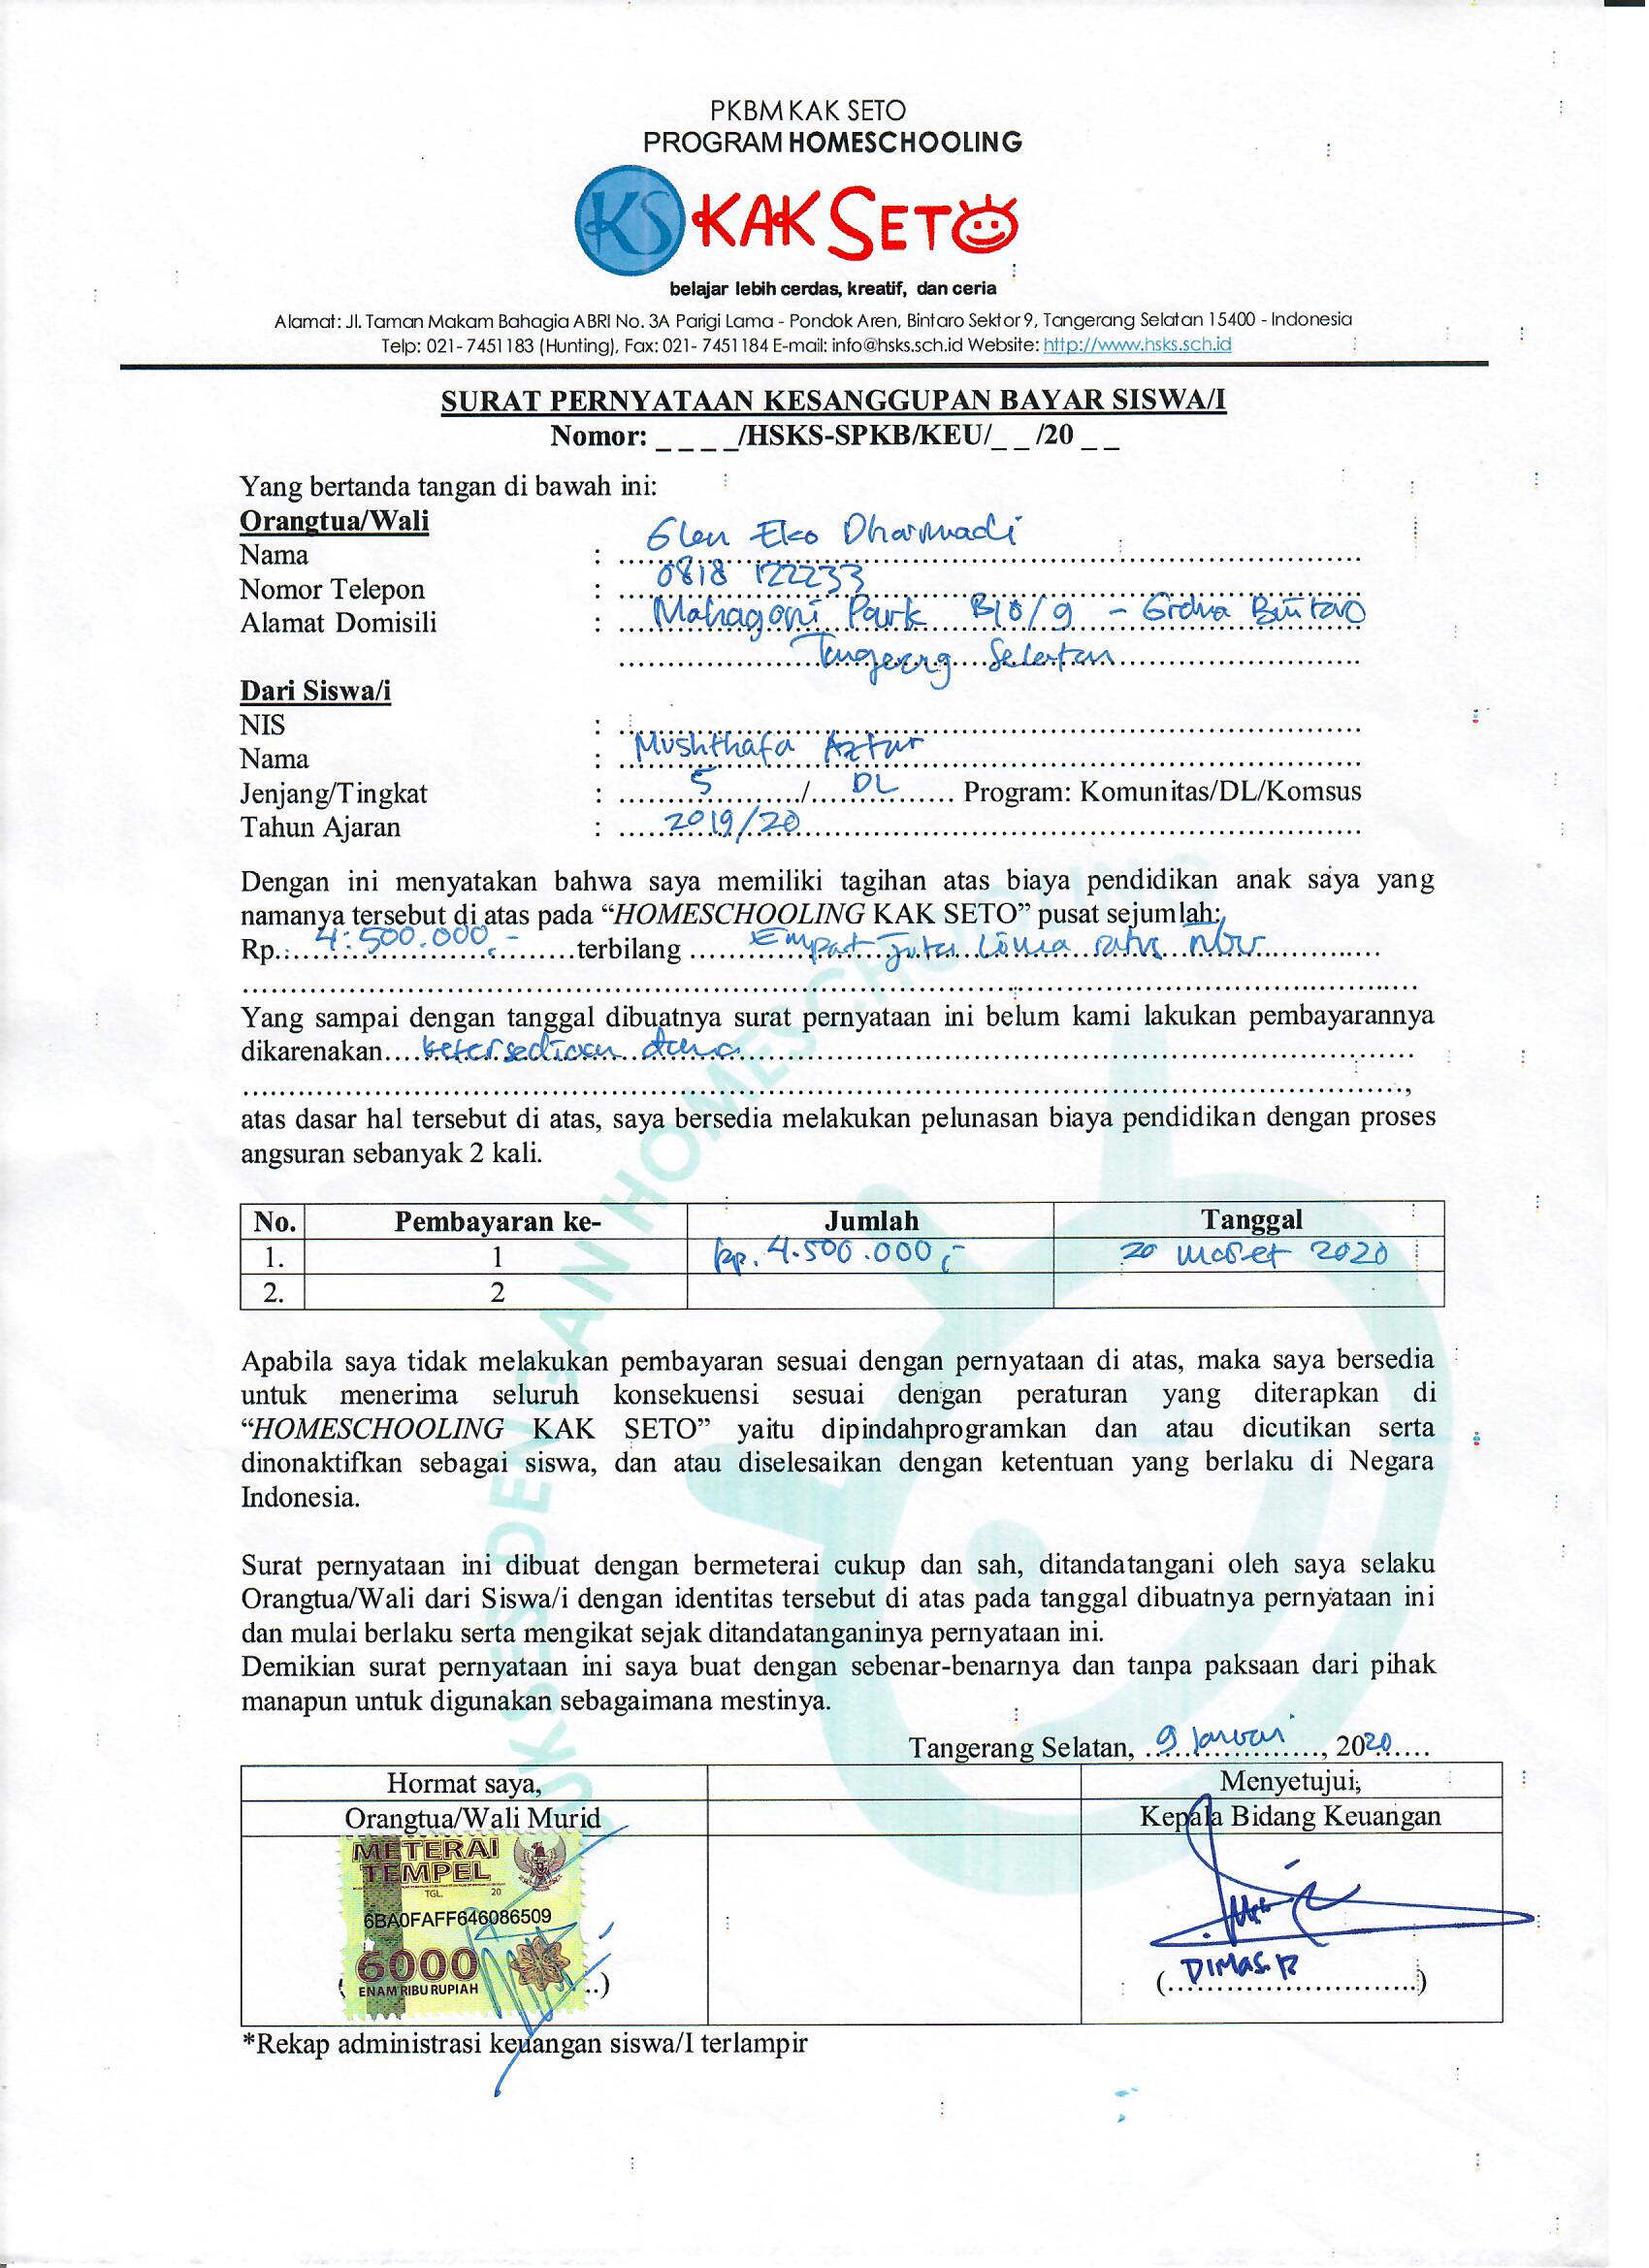 PKBM KAK SETO
PROGRAM HOMESCHOOLING
KS KAK SETO
belajar lebih cerdas, kreatif, dan ceria
Alamat: Jl. Taman Makam Bahagia ABRI No. 3A Parigi Lama - Pondok Aren, Bintaro Sektor 9, Tangerang Selatan 15400 - Indonesia
Telp: 021- 7451183 (Hunting), Fax: 021- 7451184 E-mail: info@hsks.sch.id Website: http://www.hsks.sch.id
SURAT PERNYATAAN KESANGGUPAN BAYAR SISWA/I
Nomor: _ _ _ _/HSKS-SPKB/KEU/_ _ /20 _ _
Yang bertanda tangan di bawah ini:
Orangtua/Wali
Nama : Glen Eko Dharmadi
Nomor Telepon : 0818 122233
Alamat Domisili : Mahagoni Park B10/9 - Bintaro
Selatan
Dari Siswa/i
NIS :
Nama : Mushthafa Aztur
Jenjang/Tingkat : 5 / DL Program: Komunitas/DL/Komsus
Tahun Ajaran : 2019/20
Dengan ini menyatakan bahwa saya memiliki tagihan atas biaya pendidikan anak saya yang
namanya tersebut di atas pada “HOMESCHOOLING KAK SETO” pusat sejumlah:
Rp. 4.500.000,- terbilang Empat Juta Lima ratus ribu
Yang sampai dengan tanggal dibuatnya surat pernyataan ini belum kami lakukan pembayarannya
dikarenakan ketersediaan dana
,
atas dasar hal tersebut di atas, saya bersedia melakukan pelunasan biaya pendidikan dengan proses
angsuran sebanyak 2 kali.
No. Pembayaran ke- Jumlah Tanggal
1. 1 Rp. 4.500.000,- 20 Maret 2020
2. 2
Apabila saya tidak melakukan pembayaran sesuai dengan pernyataan di atas, maka saya bersedia
untuk menerima seluruh konsekuensi sesuai dengan peraturan yang diterapkan di
“HOMESCHOOLING KAK SETO” yaitu dipindahprogramkan dan atau dicutikan serta
dinonaktifkan sebagai siswa, dan atau diselesaikan dengan ketentuan yang berlaku di Negara
Indonesia.
Surat pernyataan ini dibuat dengan bermeterai cukup dan sah, ditandatangani oleh saya selaku
Orangtua/Wali dari Siswa/i dengan identitas tersebut di atas pada tanggal dibuatnya pernyataan ini
dan mulai berlaku serta mengikat sejak ditandatanganinya pernyataan ini.
Demikian surat pernyataan ini saya buat dengan sebenar-benarnya dan tanpa paksaan dari pihak
manapun untuk digunakan sebagaimana mestinya.
Tangerang Selatan, 9 Januari, 2020
Hormat saya, Menyetujui,
Orangtua/Wali Murid Kepala Bidang Keuangan
METERAI
TEMPEL
TGL. 20
6BA0FAFF646086509
6000
ENAM RIBU RUPIAH
(Dimas. R)
*Rekap administrasi keuangan siswa/I terlampir
DENGAN HOMESCHOOLING